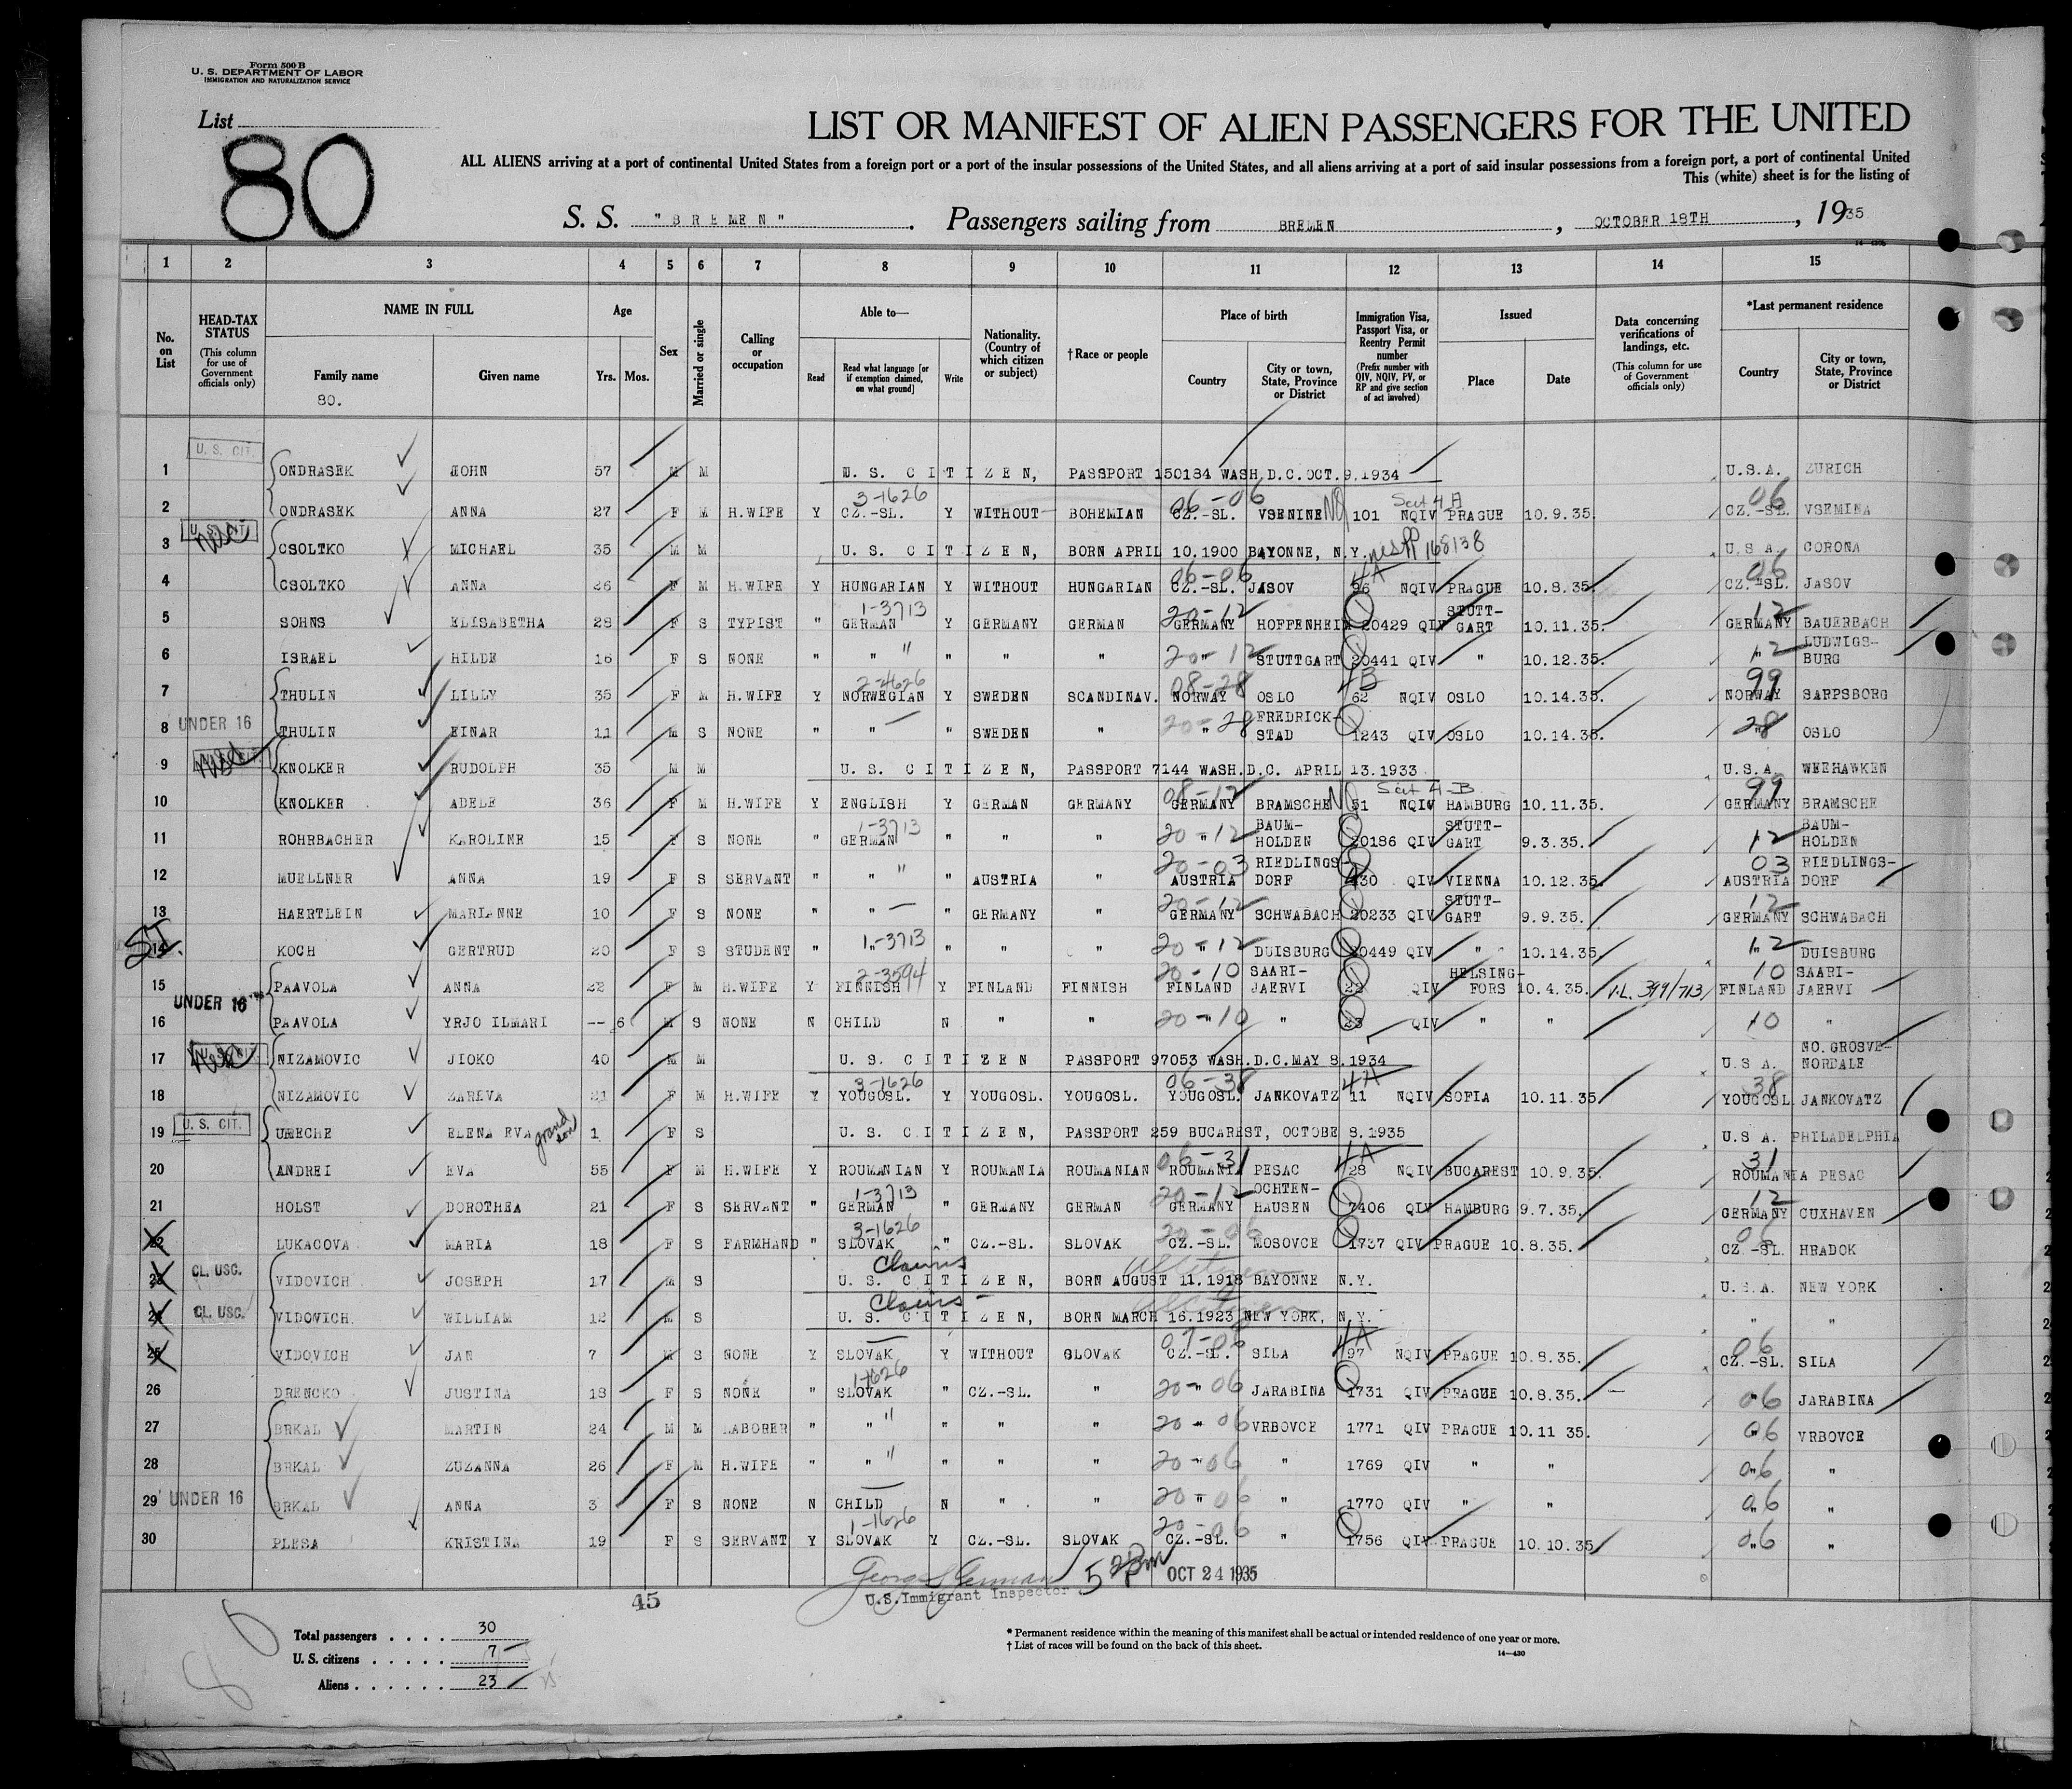 Form 500 B
U. S. DEPARTMENT OF LABOR
IMMIGRATION AND NATURALIZATION SERVICE
List
80
LIST OR MANIFEST OF ALIEN PASSENGERS FOR THE UNITED
ALL ALIENS arriving at a port of continental United States from a foreign port or a port of the insular possessions of the United States, and all aliens arriving at a port of said insular possessions from a foreign port, a port of continental United
This (white) sheet is for the listing of
S. S. "BREMEN". Passengers sailing from BREMEN, OCTOBER 18TH, 1935
1 2 3 4 5 6 7 8 9 10 11 12 13 14 15
No. on List
HEAD-TAX STATUS (This column for use of Government officials only)
NAME IN FULL
Family name
80.
Given name
Age
Yrs. Mos.
Sex
Married or single
Calling or occupation
Able to—
Read
Read what language [or if exemption claimed, on what ground]
Write
Nationality. (Country of which citizen or subject)
† Race or people
Place of birth
Country
City or town, State, Province or District
Immigration Visa, Passport Visa, or Reentry Permit number (Prefix number with QIV, NQIV, PV, or RP and give section of act involved)
Issued
Place
Date
Data concerning verifications of landings, etc. (This column for use of Government officials only)
*Last permanent residence
Country
City or town, State, Province or District
1 U. S. CIT. ONDRASEK JOHN 57 M M U. S. CITIZEN, PASSPORT 150184 WASH.D.C.OCT.9.1934 U.S.A. ZURICH
3-1626 06-06 Sect 4 A 06
2 ONDRASEK ANNA 27 F M H.WIFE Y CZ.-SL. Y WITHOUT BOHEMIAN CZ.-SL. VSENINE NQ 101 NQIV PRAGUE 10.9.35. CZ.-SL. VSEMINA
3 U. S. CIT. CSOLTKO MICHAEL 35 M M U. S. CITIZEN, BORN APRIL 10.1900 BAYONNE, N.Y. 168138 U S A. CORONA
06-06 4A 06
4 CSOLTKO ANNA 26 F M H.WIFE Y HUNGARIAN Y WITHOUT HUNGARIAN CZ.-SL. JASOV 96 NQIV PRAGUE 10.8.35. CZ.-SL. JASOV
1-3713 20-12 12
5 SOHNS ELISABETHA 28 F S TYPIST " GERMAN Y GERMANY GERMAN GERMANY HOFFENHEIM 20429 QIV STUTT-GART 10.11.35. GERMANY BAUERBACH
6 ISRAEL HILDE 16 F S NONE " " " " " 20-12 STUTTGART 20441 QIV " 10.12.35. 12 LUDWIGS-BURG
2-4626 08-28 4B 99
7 THULIN LILLY 35 F M H.WIFE Y NORWEGIAN Y SWEDEN SCANDINAV. NORWAY OSLO 62 NQIV OSLO 10.14.35. NORWAY SARPSBORG
8 UNDER 16 THULIN EINAR 11 M S NONE " " " SWEDEN " 20-28 " FREDRICK-STAD 1243 QIV OSLO 10.14.35. 28 OSLO
9 KNOLKER RUDOLPH 35 M M U. S. CITIZEN, PASSPORT 7144 WASH.D.C. APRIL 13.1933 U.S.A. WEEHAWKEN
08-12 Sect 4-B 99
10 KNOLKER ADELE 36 F M H.WIFE Y ENGLISH Y GERMAN GERMANY GERMANY BRAMSCHE NQ 51 NQIV HAMBURG 10.11.35. GERMANY BRAMSCHE
1-3713
11 ROHRBACHER KAROLINE 15 F S NONE " GERMAN " " " 20-12 BAUM-HOLDEN 20186 QIV STUTT-GART 9.3.35. 12 BAUM-HOLDEN
20-03 03
12 MUELLNER ANNA 19 F S SERVANT " " " AUSTRIA " AUSTRIA RIEDLINGS-DORF 430 QIV VIENNA 10.12.35. AUSTRIA RIEDLINGS-DORF
20-12 12
13 HAERTLEIN MARIANNE 10 F S NONE " " " GERMANY " GERMANY SCHWABACH 20233 QIV STUTT-GART 9.9.35. GERMANY SCHWABACH
14 SI. KOCH GERTRUD 20 F S STUDENT " 1-3713 " " " 20-12 DUISBURG 20449 QIV " 10.14.35. 12 DUISBURG
2-3594 20-10 10
15 PAAVOLA ANNA 22 F M H.WIFE Y FINNISH Y FINLAND FINNISH FINLAND SAARI-JAERVI 22 QIV HELSING-FORS 10.4.35. V.L. 399/713 FINLAND SAARI-JAERVI
16 UNDER 16 PAAVOLA YRJO ILMARI -- 6 M S NONE N CHILD N " " 20-10 " 23 QIV " " 10 "
17 NIZAMOVIC JIOKO 40 M M U. S. CITIZEN PASSPORT 97053 WASH.D.C.MAY 8.1934 U S A. NO. GROSVE-NORDALE
3-1626 06-38 4A 38
18 NIZAMOVIC ZAREVA 21 F M H.WIFE Y YOUGOSL. Y YOUGOSL. YOUGOSL. YOUGOSL. JANKOVATZ 11 NQIV SOFIA 10.11.35 YOUGOSL JANKOVATZ
19 U. S. CIT. URECHE ELENA EVA grand son 1 F S U. S. CITIZEN, PASSPORT 259 BUCAREST, OCTOBE 8.1935 U.S A. PHILADELPHIA
06-31 4A 31
20 ANDREI EVA 55 F M H.WIFE Y ROUMANIAN Y ROUMANIA ROUMANIAN ROUMANIA PESAC 28 NQIV BUCAREST 10.9.35. ROUMANIA PESAC
1-3713 20-12 12
21 HOLST DOROTHEA 21 F S SERVANT " GERMAN " GERMANY GERMAN GERMANY OCHTEN-HAUSEN 7406 QIV HAMBURG 9.7.35. GERMANY CUXHAVEN
3-1626 20-06 06
22 LUKACOVA MARIA 18 F S FARMHAND " SLOVAK " CZ.-SL. SLOVAK CZ.-SL. MOSOVCE 1737 QIV PRAGUE 10.8.35. CZ.-SL. HRADOK
Claims
23 CL. USC. VIDOVICH JOSEPH 17 M S U. S. CITIZEN, BORN AUGUST 11.1918 BAYONNE N.Y. U.S.A. NEW YORK
Claims
24 CL. USC. VIDOVICH WILLIAM 12 M S U. S. CITIZEN, BORN MARCH 16.1923 NEW YORK, N.Y. " "
07-06 4A 06
25 VIDOVICH JAN 7 M S NONE Y SLOVAK Y WITHOUT SLOVAK CZ.-SL. SILA 97 NQIV PRAGUE 10.8.35. CZ.-SL. SILA
1-1626
26 DRENCKO JUSTINA 18 F S NONE " SLOVAK " CZ.-SL. " 20-06 JARABINA 1731 QIV PRAGUE 10.8.35. 06 JARABINA
27 BRKAL MARTIN 24 M M LABORER " " " " " 20-06 VRBOVCE 1771 QIV PRAGUE 10.11 35. 06 VRBOVCE
28 BRKAL ZUZANNA 26 F M H.WIFE " " " " " 20-06 " 1769 QIV " " 06 "
29 UNDER 16 BRKAL ANNA 3 F S NONE N CHILD N " " 20-06 " 1770 QIV " " 06 "
1-1626 20-06
30 PLESA KRISTINA 19 F S SERVANT Y SLOVAK Y CZ.-SL. SLOVAK CZ.-SL. " 1756 QIV PRAGUE 10.10.35 06 "
OCT 24 1935
45
U.S. Immigrant Inspector
Total passengers . . . . 30
U. S. citizens . . . . . 7
Aliens . . . . . . 23
* Permanent residence within the meaning of this manifest shall be actual or intended residence of one year or more.
† List of races will be found on the back of this sheet.
14—430